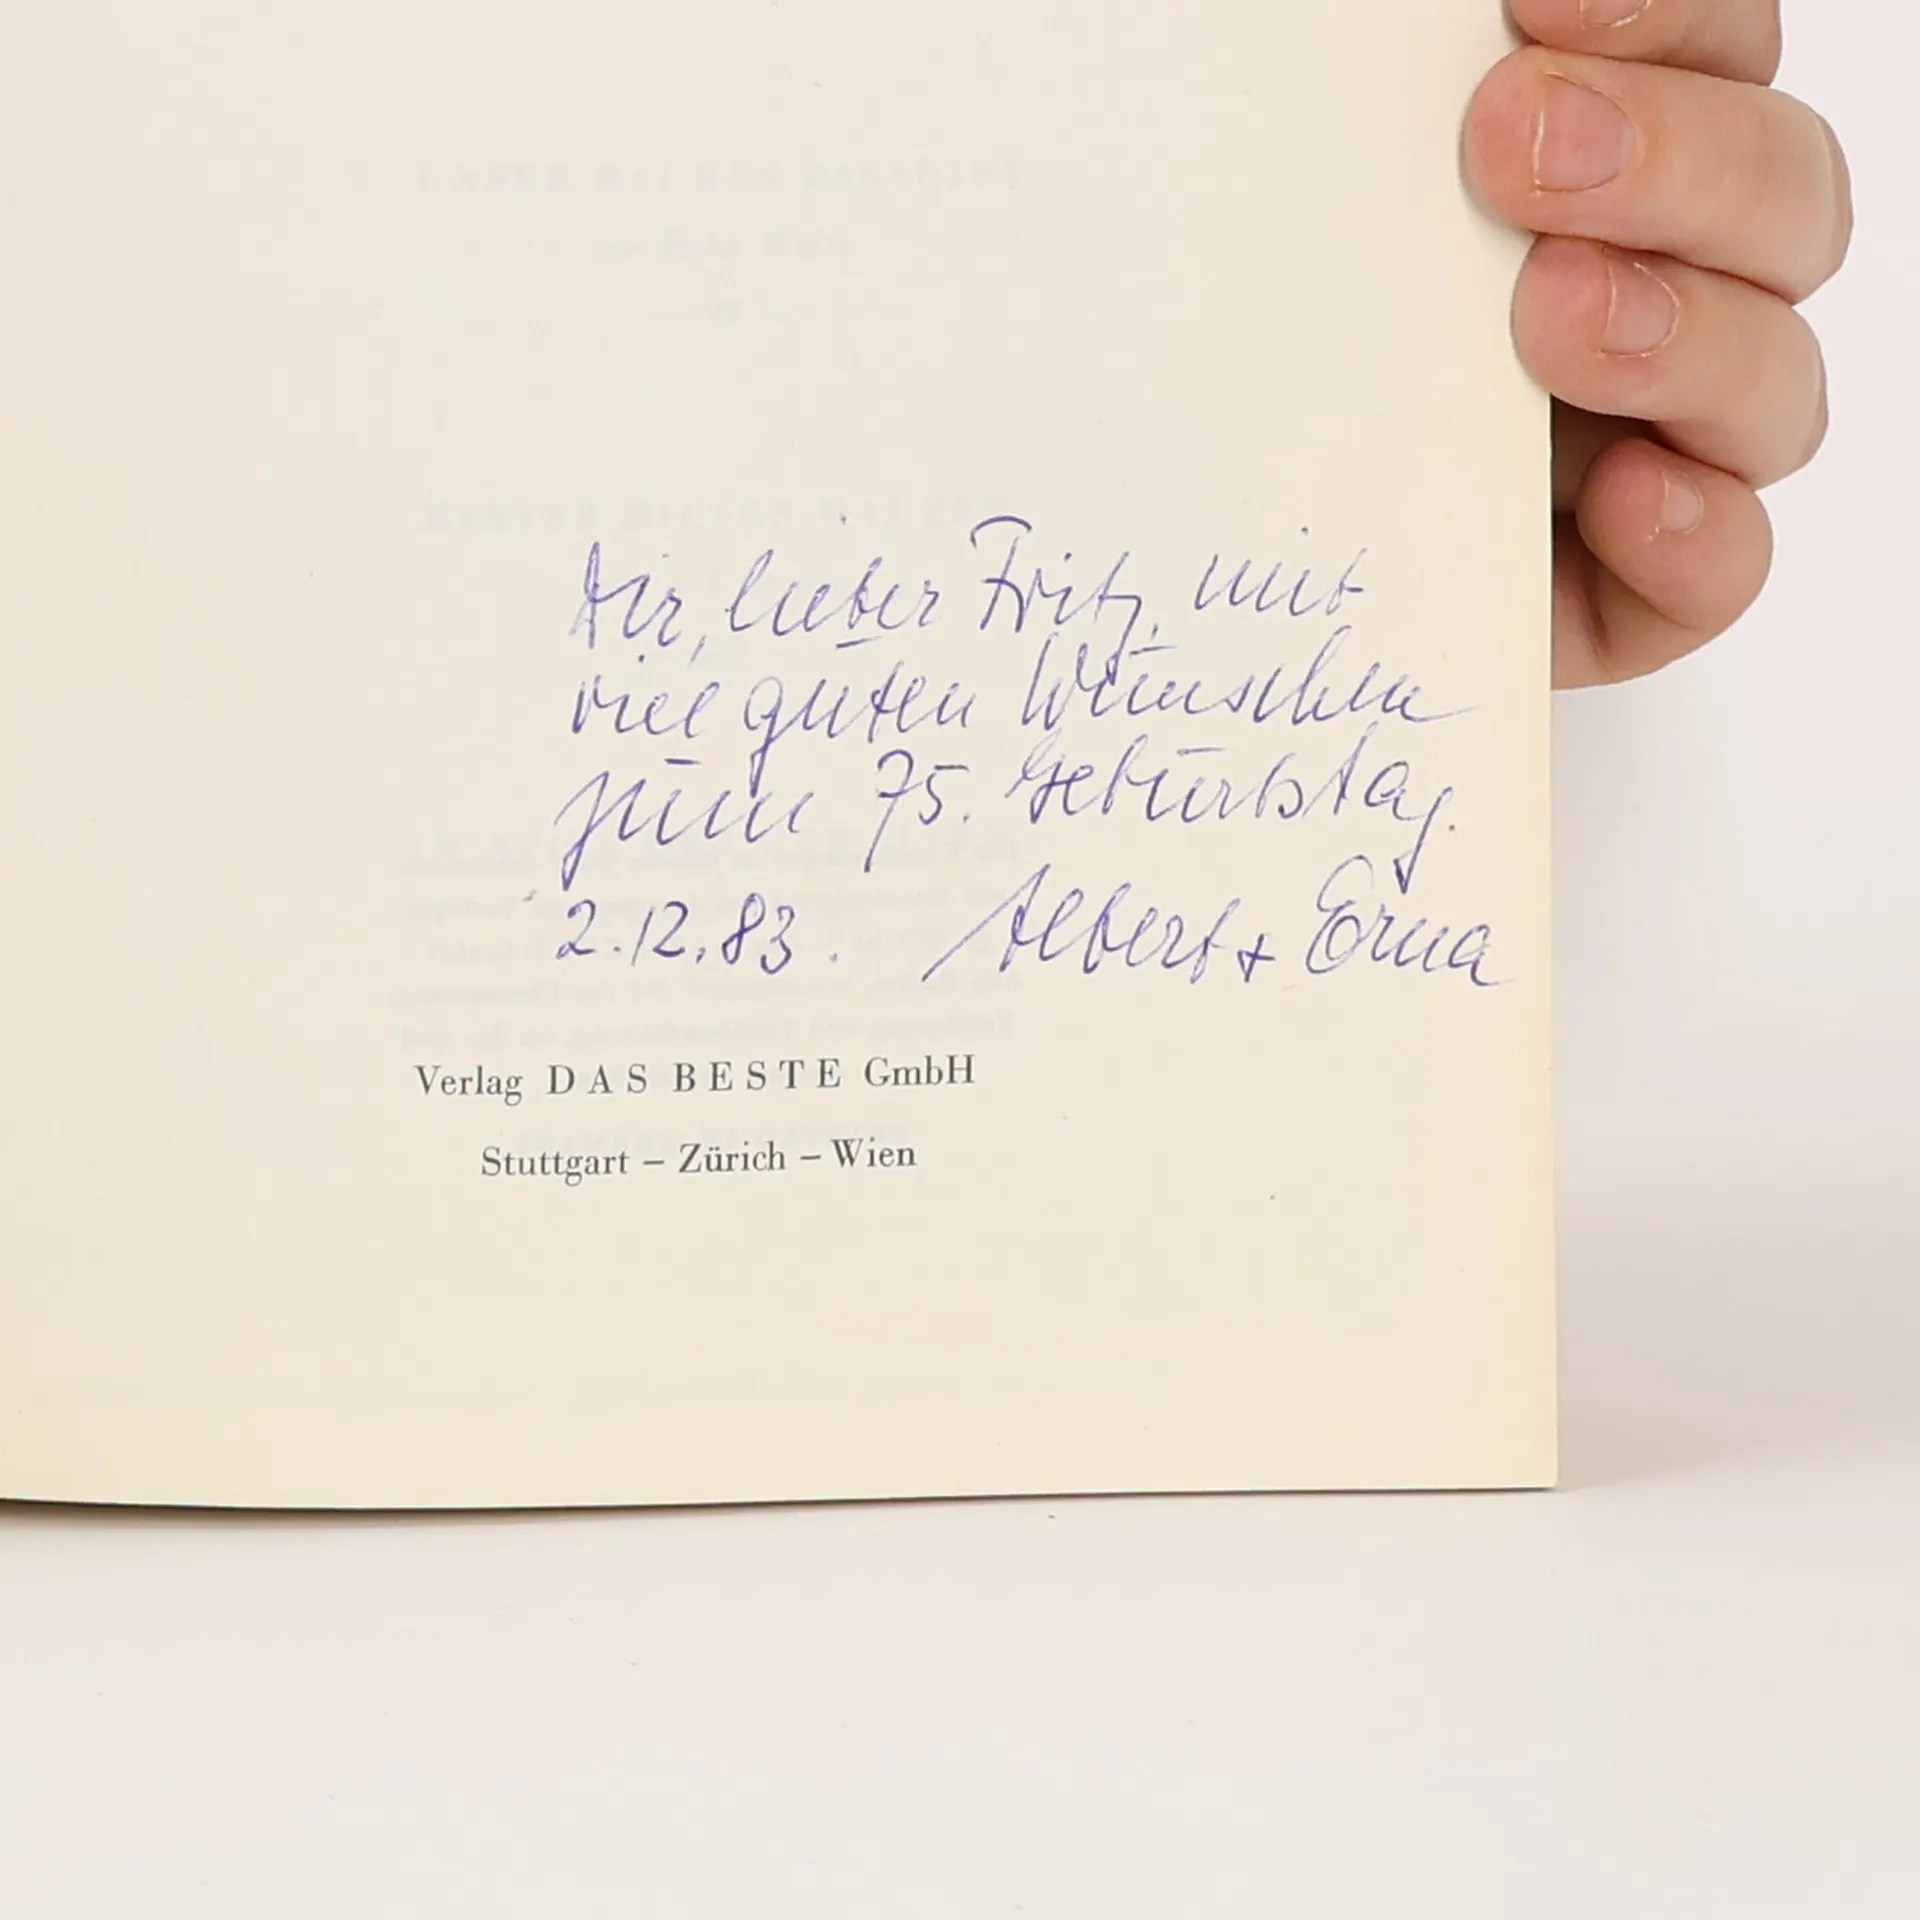 Dir, lieber Fritz, mit
viel guten Wünschen
zum 75. Geburtstag.
2.12.83. Albert + Erna
Verlag DAS BESTE GmbH
Stuttgart – Zürich – Wien